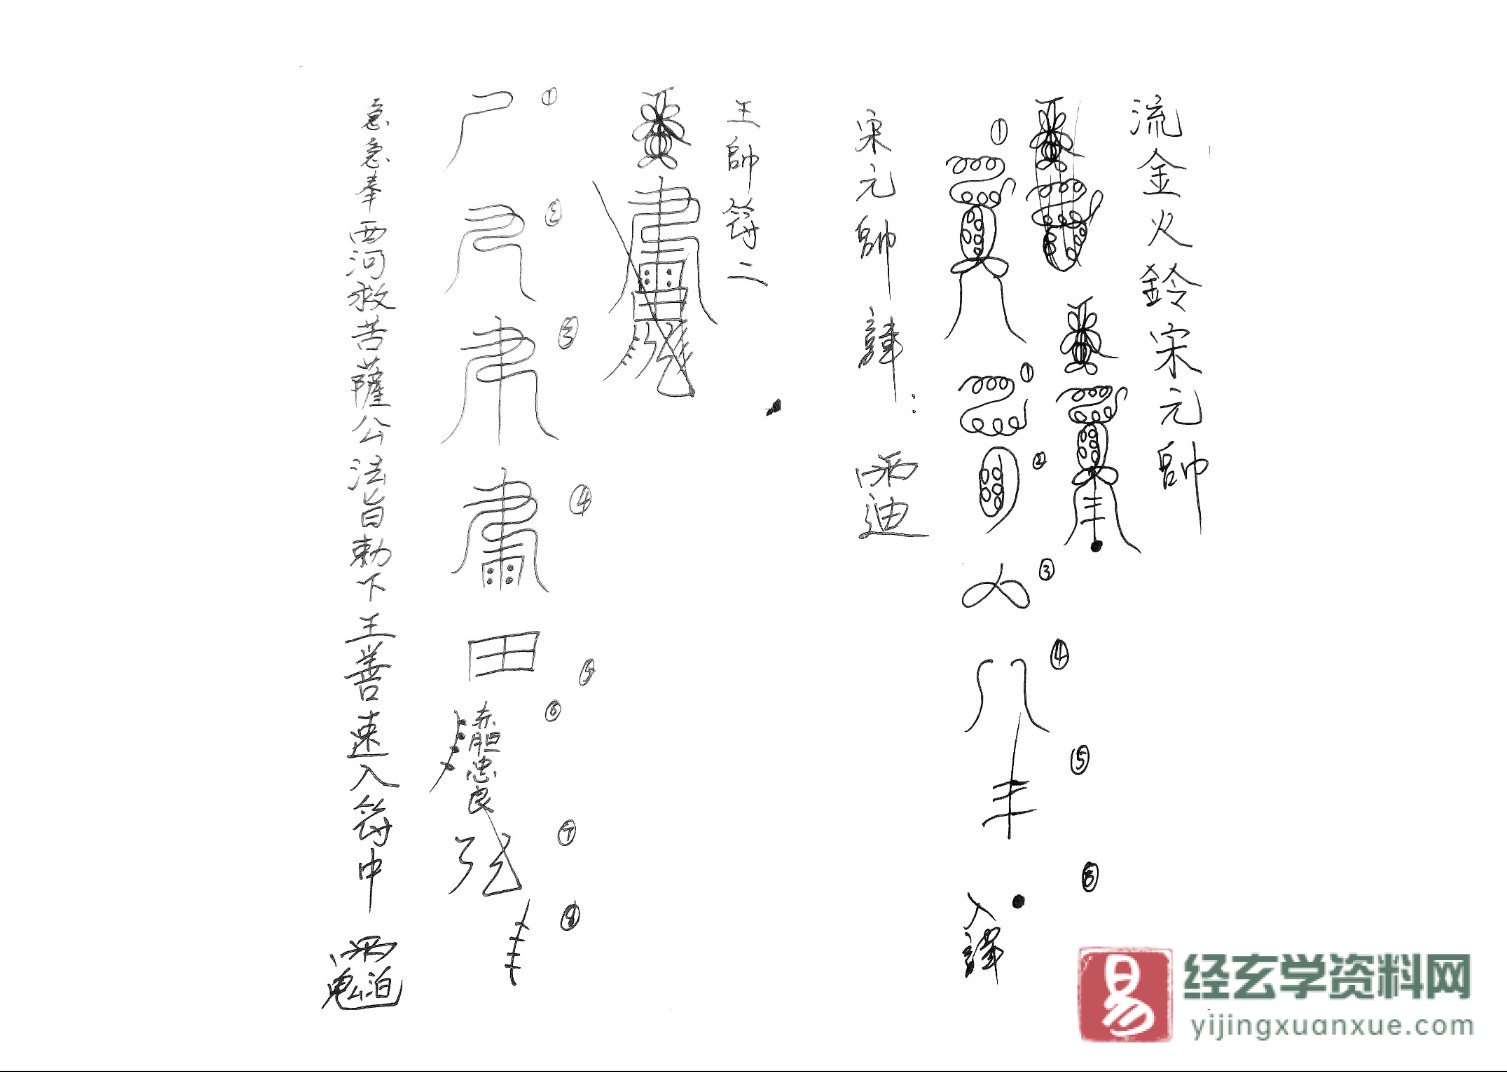 流金火鈴宋元帥
①
①
②
③
④
⑤
⑥
入諱
宋元帥諱：
王帥符二
①
②
③
④
⑤
⑥
赤胆忠良
⑦
⑧
急急奉西河救苦薩公法旨勅下王善速入符中
易
经玄学资料网
yijingxuanxue.com